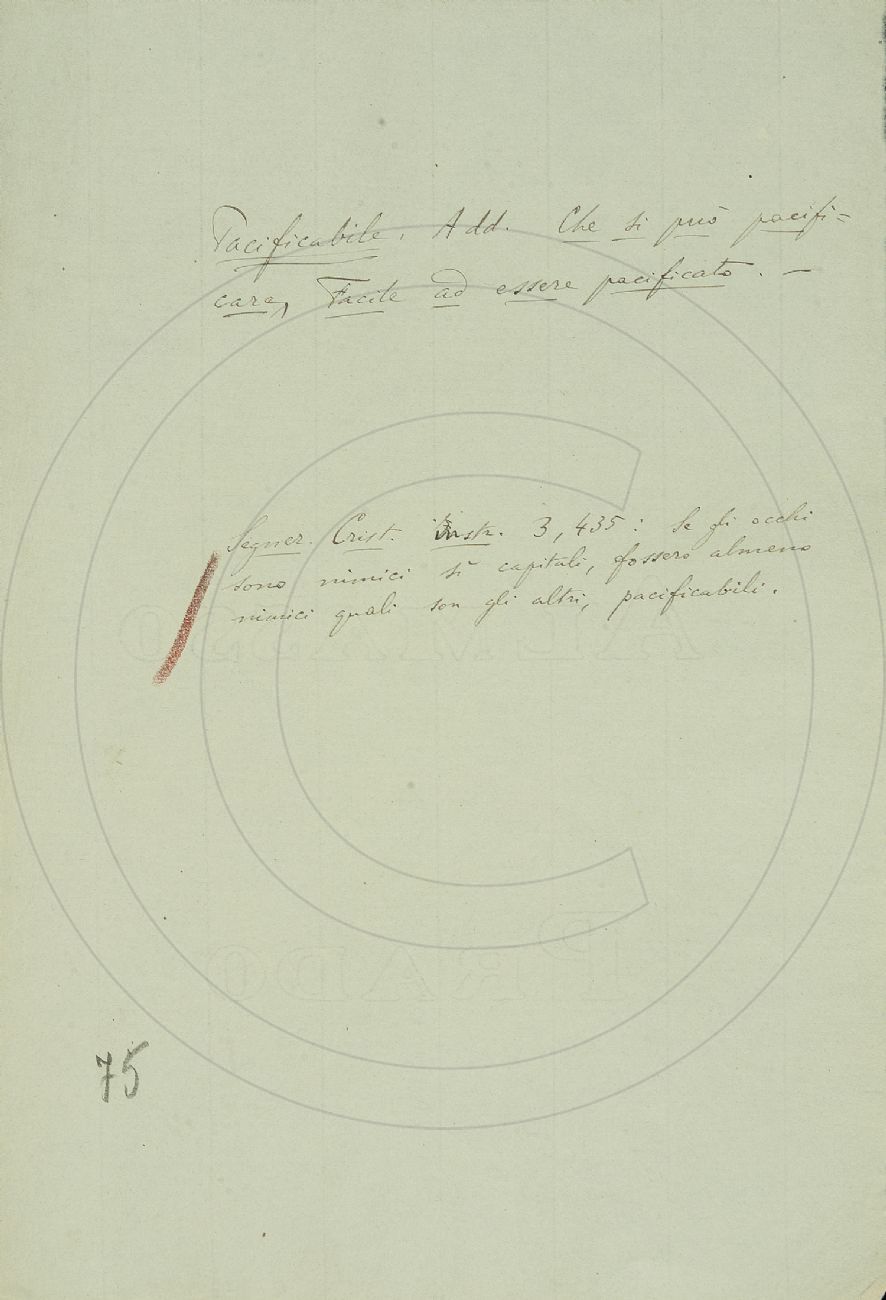 Pacificabile. Add. Che si può pacifi=
care, Facile ad essere pacificato. —
Segner. Crist. Instr. 3, 435: Se gli occhi
sono nimici sì capitali, fossero almeno
nimici quali son gli altri, pacificabili.
PRADO
75